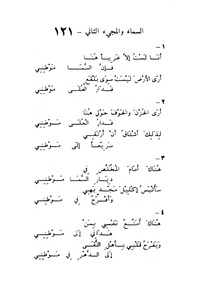 السماء والمجيء الثاني - ١٢١
١ -
أنا لست إلا غريبا هنا
فإن السما موطني
أرى الأرض ليست سوى بلقع
فدار العلى موطني
٢ -
أرى الحزن والخوف حولي هنا
فدار العلى موطني
لذلك أشتاق أن أرتقي
سريعا إلى موطني
٣ -
هناك أمام المخلص في
ديار السما موطني
سألبس إكليل مجد بهي
وأفرح في موطني
٤ -
هناك أمتع نفسي بمن
هداني إلى موطني
ويفرح قلبي بأهل التقى
إلى الدهر في موطني